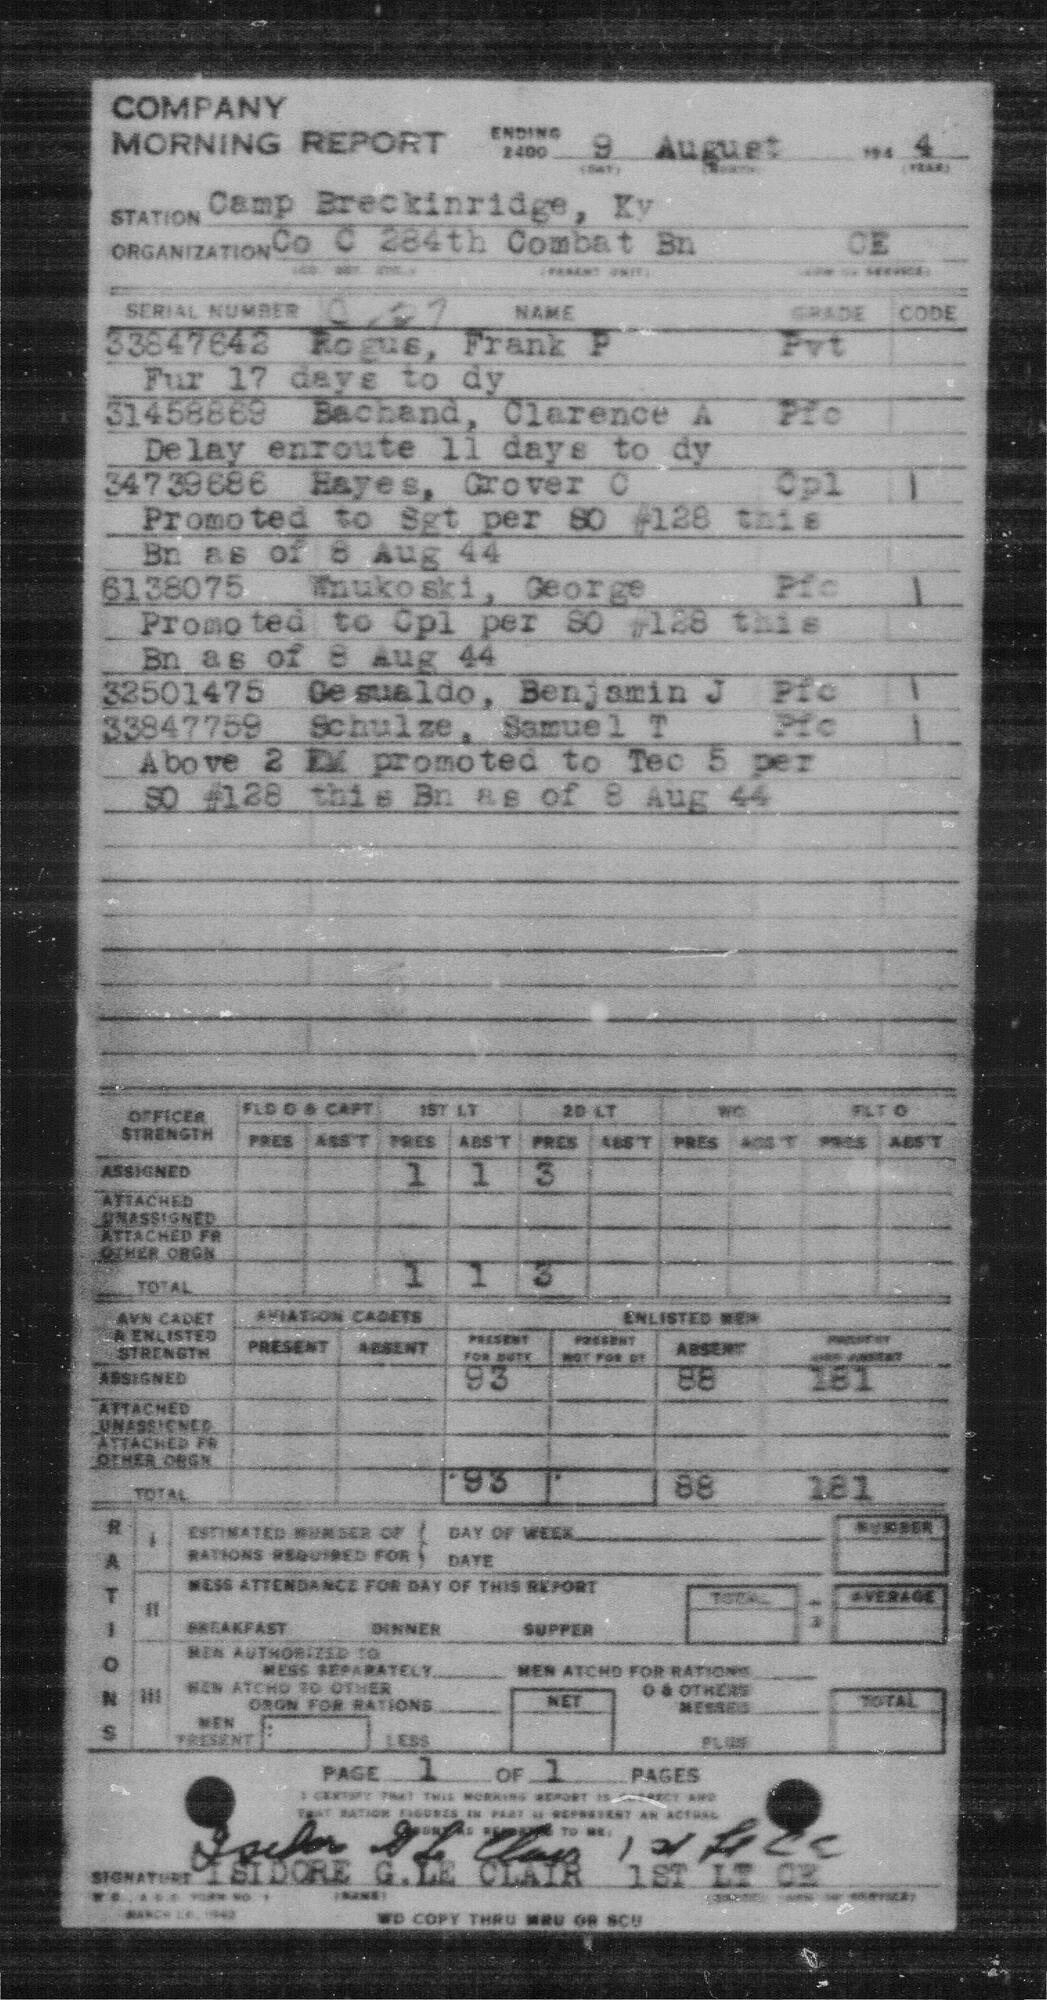 COMPANY
MORNING REPORT ENDING 2400 9 August 194 4
(DAY) (MONTH) (YEAR)
STATION Camp Breckinridge, Ky
ORGANIZATION Co C 284th Combat Bn CE
(CO. DET. ETC.) (PARENT UNIT) (ARM OR SERVICE)
SERIAL NUMBER NAME GRADE CODE
33847642 Rogus, Frank P Pvt
Fur 17 days to dy
31458869 Bachand, Clarence A Pfc
Delay enroute 11 days to dy
34739686 Hayes, Grover C Cpl |
Promoted to Sgt per SO #128 this
Bn as of 8 Aug 44
6138075 Wnukoski, George Pfc |
Promoted to Cpl per SO #128 this
Bn as of 8 Aug 44
32501475 Gesualdo, Benjamin J Pfc \
33847759 Schulze, Samuel T Pfc |
Above 2 EM promoted to Tec 5 per
SO #128 this Bn as of 8 Aug 44
OFFICER STRENGTH FLD O & CAPT 1ST LT 2D LT WO FLT O
PRES ABS'T PRES ABS'T PRES ABS'T PRES ABS'T PRES ABS'T
ASSIGNED 1 1 3
ATTACHED UNASSIGNED
ATTACHED FR OTHER ORGN
TOTAL 1 1 3
AVN CADET & ENLISTED STRENGTH AVIATION CADETS ENLISTED MEN
PRESENT ABSENT PRESENT FOR DUTY PRESENT NOT FOR DY ABSENT PRESENT AND ABSENT
ASSIGNED 93 88 181
ATTACHED UNASSIGNED
ATTACHED FR OTHER ORGN
TOTAL 93 88 181
RATIONS
I ESTIMATED NUMBER OF RATIONS REQUIRED FOR DAY OF WEEK NUMBER
DATE
II MESS ATTENDANCE FOR DAY OF THIS REPORT TOTAL ÷ 3 AVERAGE
BREAKFAST DINNER SUPPER
III MEN AUTHORIZED TO MESS SEPARATELY MEN ATCHD FOR RATIONS
MEN ATCHD TO OTHER ORGN FOR RATIONS NET O & OTHERS MESSES TOTAL
MEN PRESENT LESS PLUS
PAGE 1 OF 1 PAGES
I CERTIFY THAT THIS MORNING REPORT IS CORRECT AND
THAT RATION FIGURES IN PART II REPRESENT AN ACTUAL
COUNT AS REPORTED TO ME:
Isidore G Le Clair 1st Lt CE
SIGNATURE ISIDORE G.LE CLAIR 1ST LT CE
W.D., A.G.O. FORM NO. 1 (NAME) (GRADE) (ARM OR SERVICE)
MARCH
WD COPY THRU MRU OR SCU